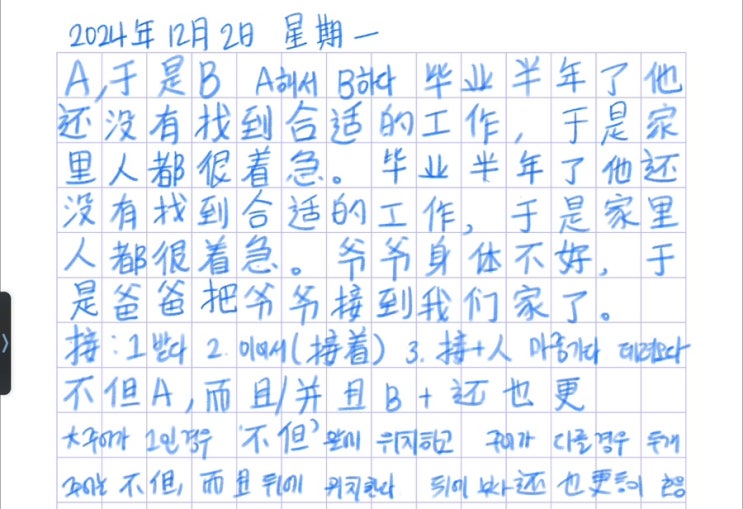 2024年 12月 2日 星期一
A,于是B A해서 B하다 毕业半年了他
还没有找到合适的工作，于是家
里人都很着急。毕业半年了他还
没有找到合适的工作，于是家里
人都很着急。爷爷身体不好，于
是爸爸把爷爷接到我们家了。
接：1 받다 2. 이어서(接着) 3. 接+人 마중가다 데려오다
不但A，而且/并且B + 还也更
*주어가 1인경우 '不但' 앞에 위치하고 주어가 다를경우 두개
주어는 不但, 而且 뒤에 위치한다 뒤에 还 也 更등이